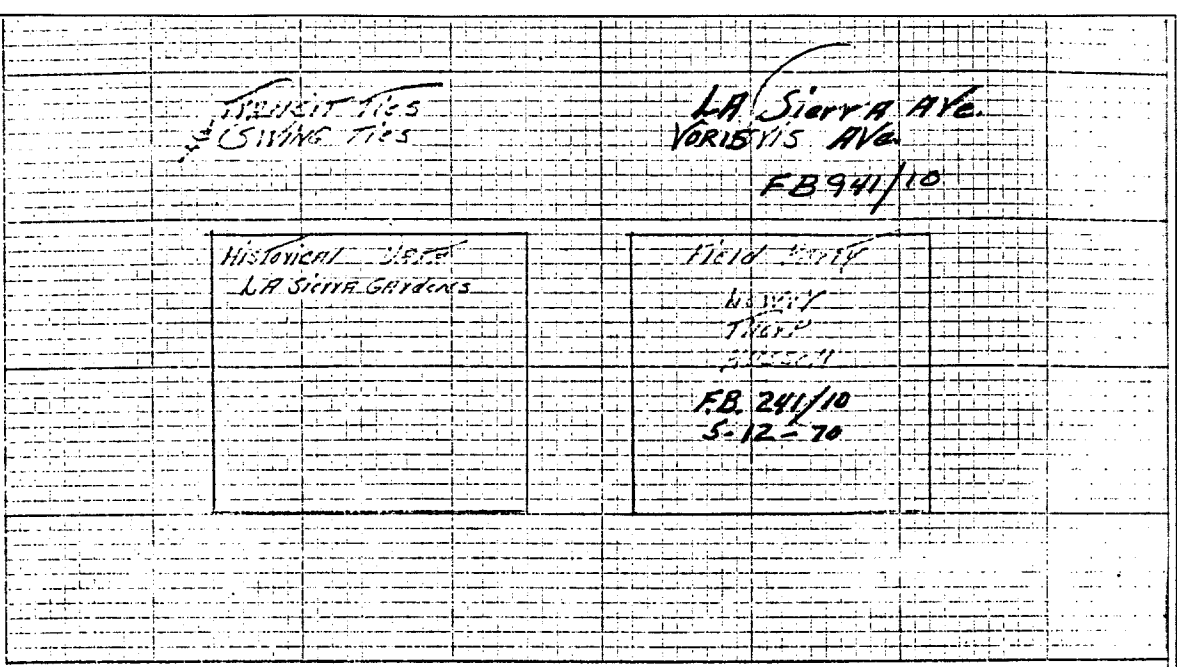 TRANSIT Ties
SWING Ties
LA Sierra AVE.
AVe.
FB 941/10
Historical Data
LA Sierra GArdens
Field Party
Thorp
F.B. 241/10
5-12-70